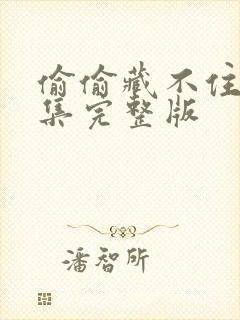 偷偷藏不住
集完整版
潘智所